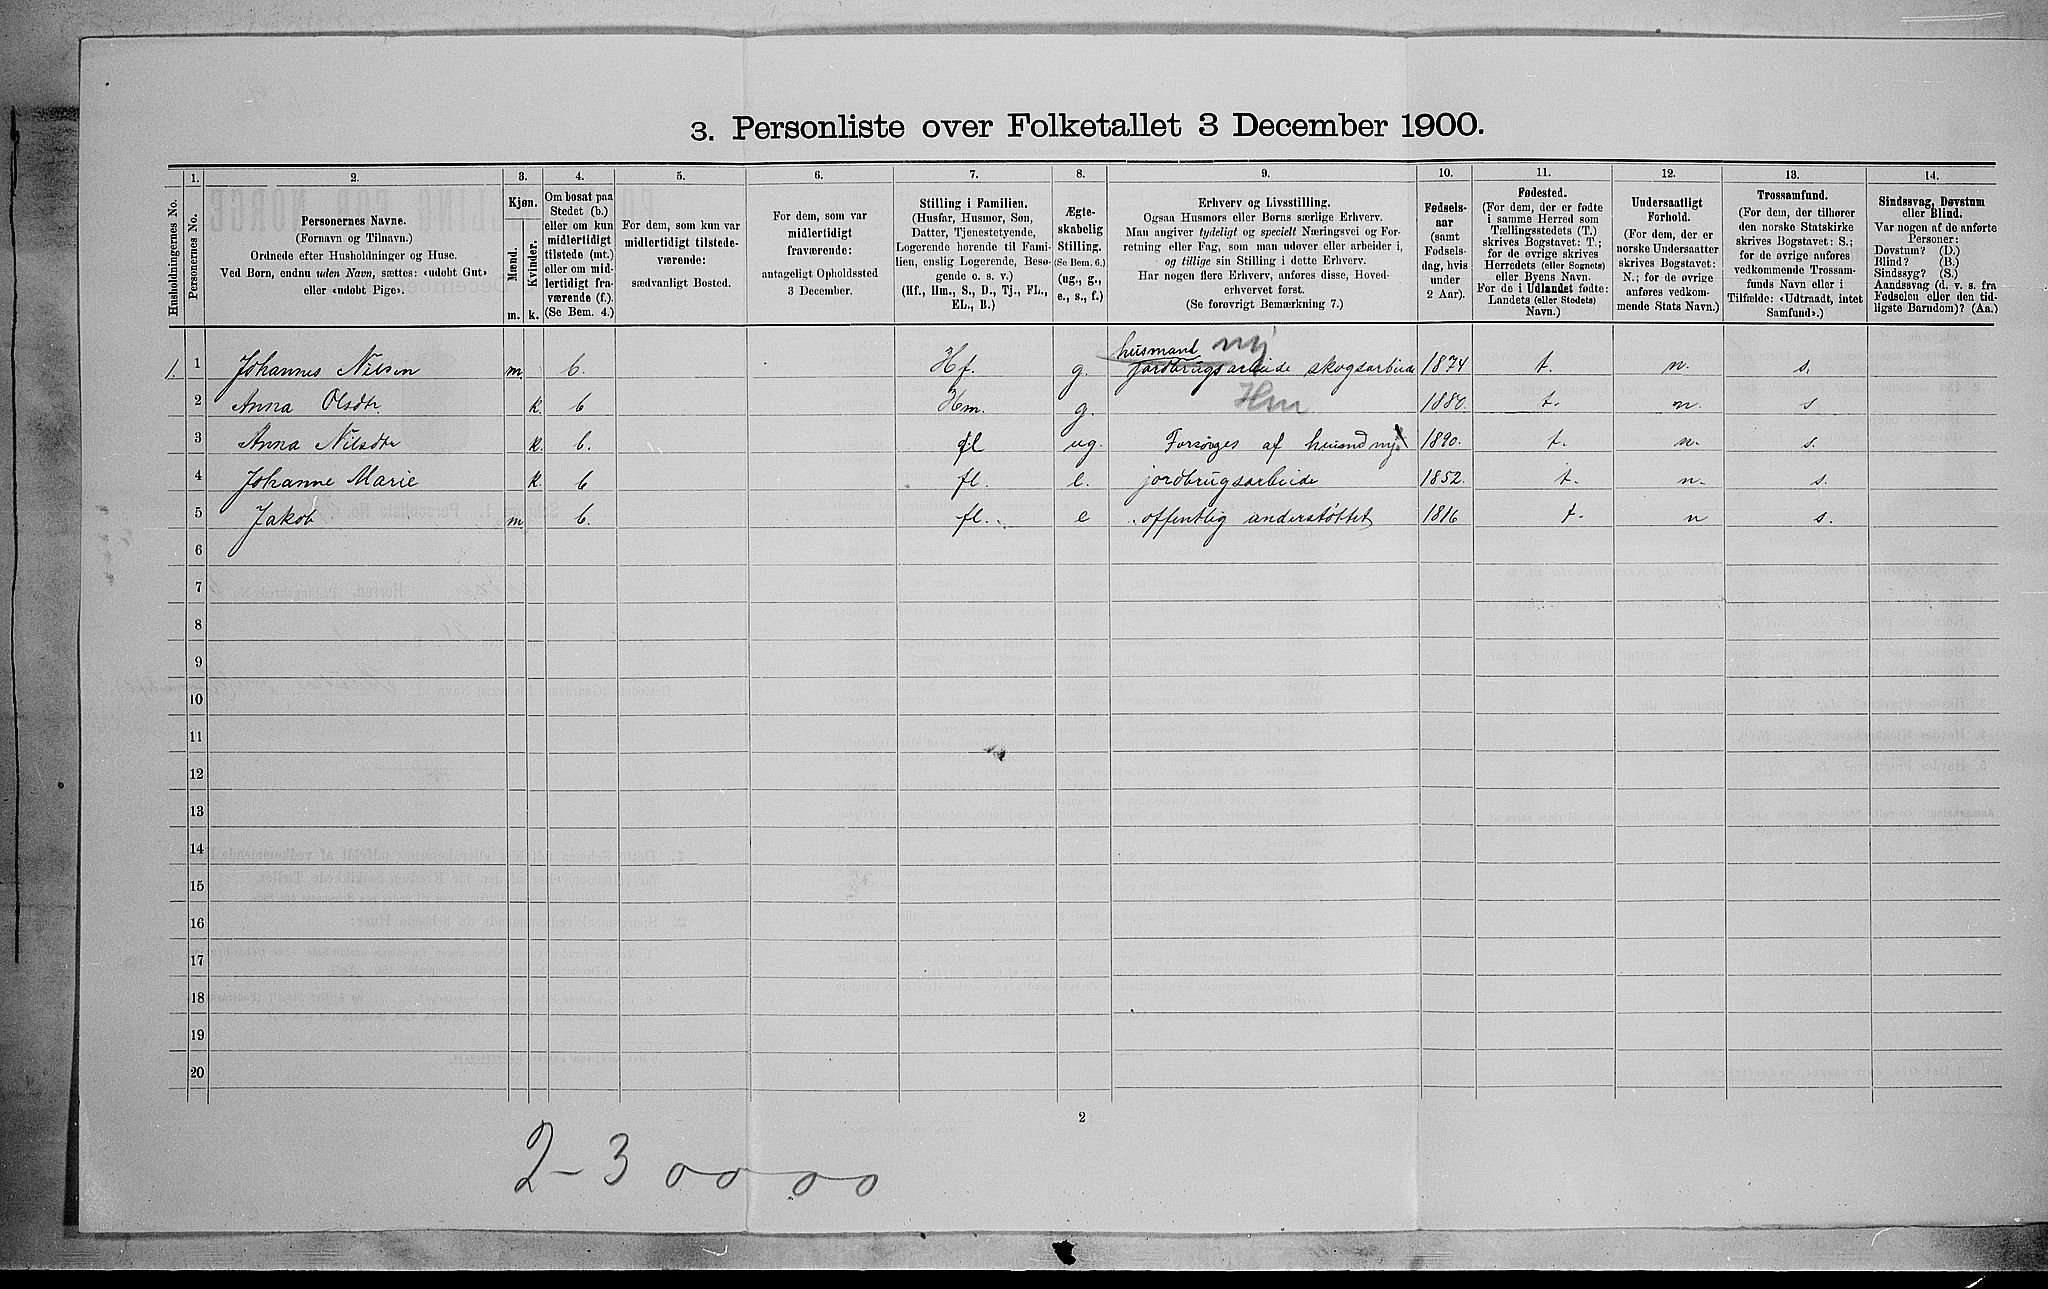 3. Personliste over Folketallet 3 December 1900.
Husholdningernes No.
1.
Personernes No.
2.
Personernes Navne.
(Fornavn og Tilnavn.)
Ordnede efter Husholdninger og Huse.
Ved Børn, endnu uden Navn, sættes: «udøbt Gut»
eller «udøbt Pige».
3.
Kjøn.
Mænd.
Kvinder.
m. k.
4.
Om bosat paa
Stedet (b.)
eller om kun
midlertidigt
tilstede (mt.)
eller om mid-
lertidigt fra-
værende (f.).
(Se Bem. 4.)
5.
For dem, som kun var
midlertidigt tilstede-
værende:
sædvanligt Bosted.
6.
For dem, som var
midlertidigt
fraværende:
antageligt Opholdssted
3 December.
7.
Stilling i Familien.
(Husfar, Husmor, Søn,
Datter, Tjenestetyende,
Logerende hørende til Fami-
lien, enslig Logerende, Besø-
gende o. s. v.)
(Hf., Hm., S., D., Tj., FL.,
EL., B.)
8.
Ægte-
skabelig
Stilling.
(Se Bem. 6.)
(ug., g.,
e., s., f.)
9.
Erhverv og Livsstilling.
Ogsaa Husmors eller Børns særlige Erhverv.
Man angiver tydeligt og specielt Næringsvei og For-
retning eller Fag, som man udøver eller arbeider i,
og tillige sin Stilling i dette Erhverv.
Har nogen flere Erhverv, anføres disse, Hoved-
erhvervet først.
(Se forøvrigt Bemærkning 7.)
10.
Fødsels-
aar
(samt
Fødsels-
dag, hvis
under
2 Aar).
11.
Fødested.
(For dem, der er fødte
i samme Herred som
Tællingsstedets (T.)
skrives Bogstavet: T.;
for de øvrige skrives
Herredets (eller Sognets)
eller Byens Navn.
For de i Udlandet fødte:
Landets (eller Stedets)
Navn.)
12.
Undersaatligt
Forhold.
(For dem, der er
norske Undersaatter
skrives Bogstavet:
N.; for de øvrige
anføres vedkom-
mende Stats Navn.)
13.
Trossamfund.
(For dem, der tilhører
den norske Statskirke
skrives Bogstavet: S.;
for de øvrige anføres
vedkommende Trossam-
funds Navn eller i
Tilfælde: «Udtraadt, intet
Samfund».)
14.
Sindssvag, Døvstum
eller Blind.
Var nogen af de anførte
Personer:
Døvstum? (D.)
Blind? (B.)
Sindssyg? (S.)
Aandssvag (d. v. s. fra
Fødselen eller den tid-
ligste Barndom)? (Aa.)
husmand mj
1. 1 Johannes Nilsen m. b. Hf. g. jordbrugsarbeide skogsarbeide 1874 t. n. s.
2 Anna Olsdtr k. b Hm. g. Hm 1880. t. n. s
3 Anna Nilsdtr k. b. fl ug. Forsørges af husmd mj 1890. t. n. s.
4 Johanne Marie k. b fl. e. jordbrugsarbeide 1852. t. n. s.
5 Jakob m b. fl. e offentlig understøttet 1816 t. n s.
6
7
8
9
10
11
12
13
14
15
16
17
18
19
20
2
2-3 00 00